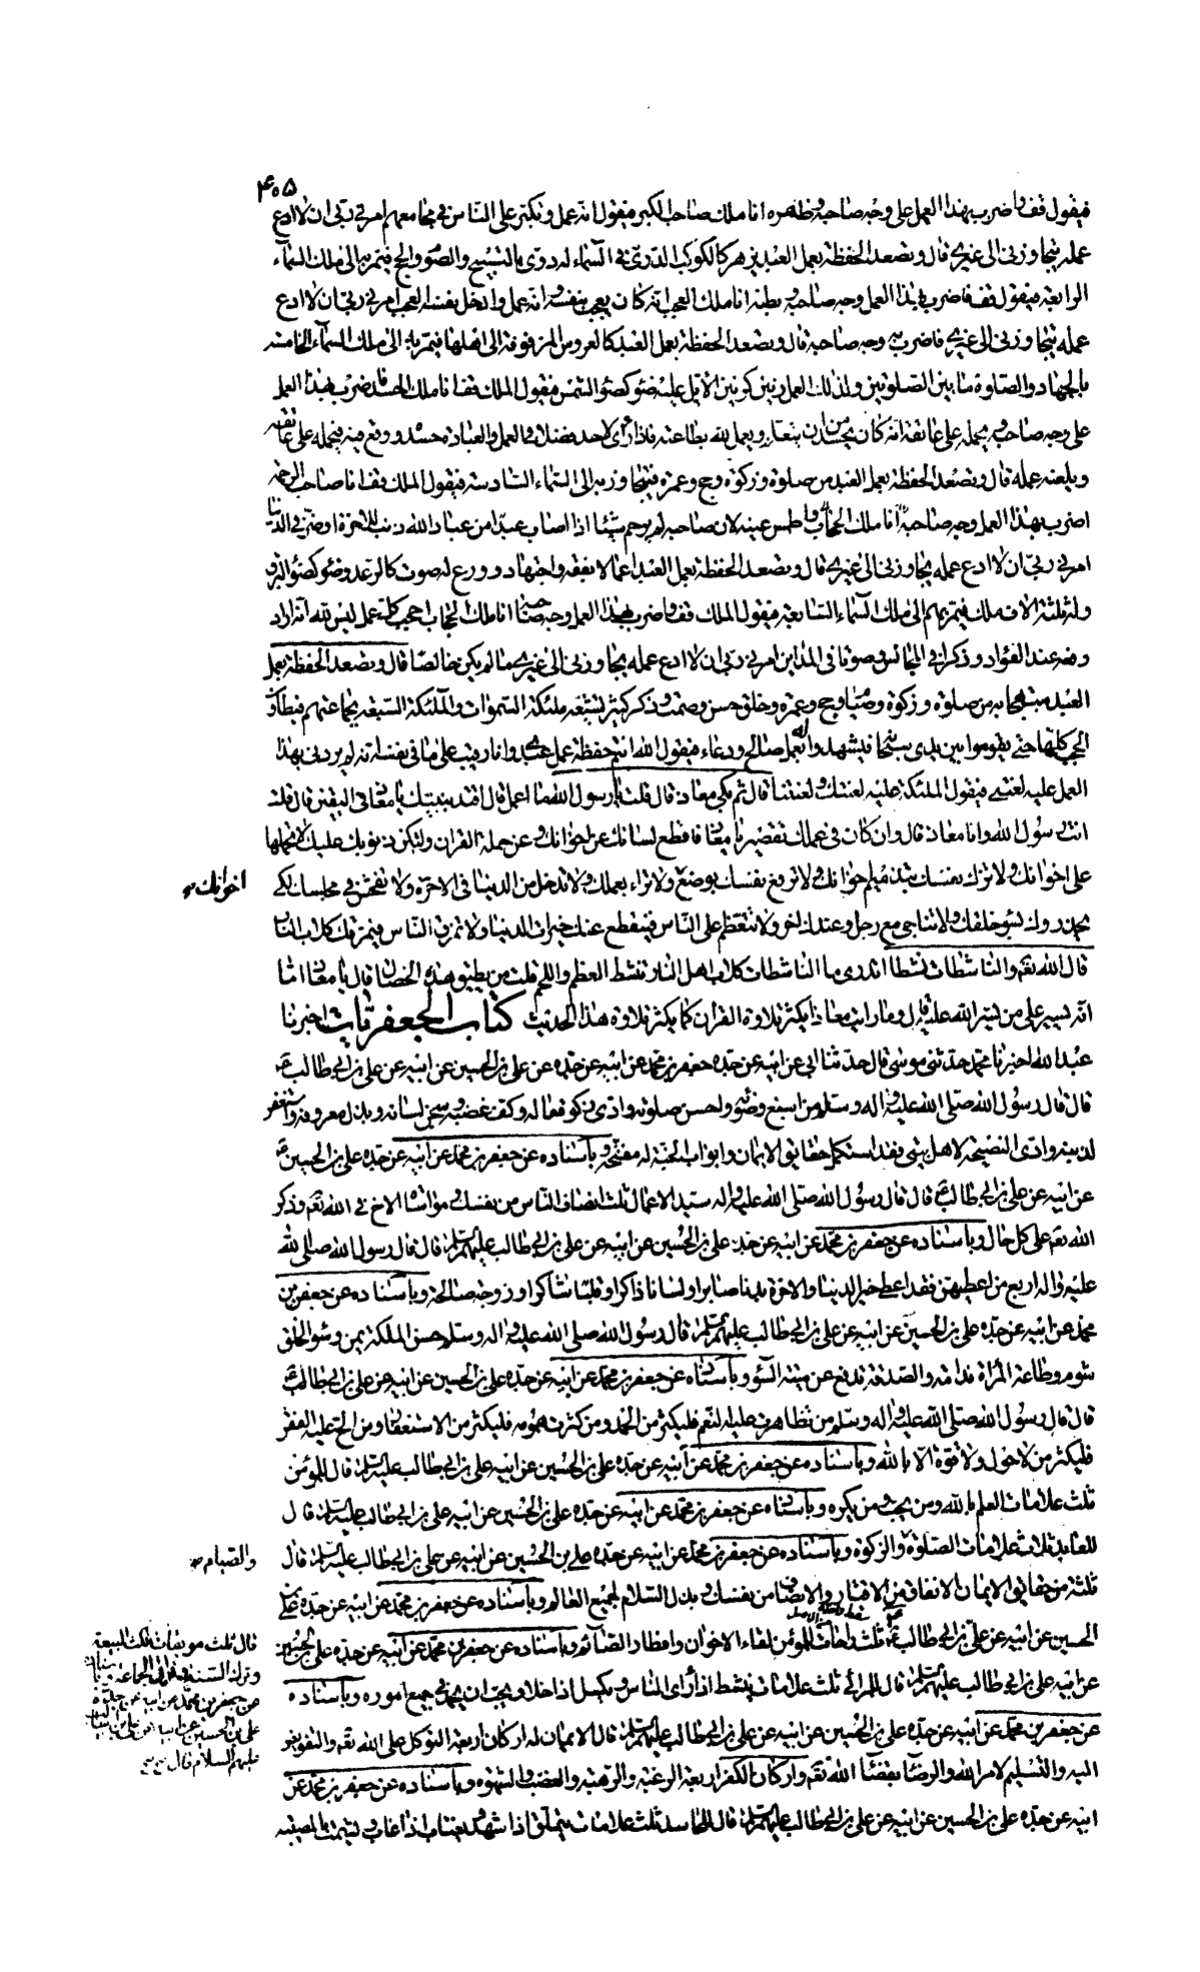 ۴۰۵
فيقول قف واضرب بهذا العمل على وجه صاحبه وظهره انا ملك صاحب الكبر فيقول انه عمل وتكبر على الناس في مجامعهم امرني ربي ان لا ادع
عمله يتجاوزني الى غيري قال وتصعد الحفظة بعمل العبد يزهر كالكوكب الدري في السماء له دوي بالتسبيح والصوم والحج فيمر به الى ملك السماء
الرابعة فيقول قف فاضرب بهذا العمل وجه صاحبه وبطنه انا ملك العجب انه كان يعجب بنفسه وانه عمل وادخل نفسه العجب امرني ربي ان لا ادع
عمله يتجاوزني الى غيري فاضرب به وجه صاحبه قال وتصعد الحفظة بعمل العبد كالعروس المزفوفة الى اهلها فيمر به الى ملك السماء الخامسة
بالجهاد والصلوة ما بين الصلوتين ولذلك العمل رنين كرنين الابل عليه ضوء كضوء الشمس فيقول الملك قف انا ملك الحسد فاضرب بهذا العمل
على وجه صاحبه ويحمله على عاتقه انه كان يحسد من يتعلم ويعمل لله بطاعته فاذا رأى لاحد فضلا في العمل والعبادة حسده ووقع فيه فيحمله على عاتقه
ويلعنه عمله قال وتصعد الحفظة بعمل العبد من صلوة وزكوة وحج وعمرة فيتجاوز به الى السماء السادسة فيقول الملك قف انا صاحب الرحمة
اضرب بهذا العمل وجه صاحبه انا ملك الحجاب واطمس عينيه لان صاحبه لم يرحم شيئا اذا اصاب عبدا من عباد الله ذنب للاخرة او ضر في الدنيا
امرني ربي ان لا ادع عمله يتجاوزني الى غيري قال وتصعد الحفظة بعمل العبد اعمالا بفقه واجتهاد وورع له صوت كالرعد وضوء كضوء البرق
وله ثلثة الاف ملك فيمر بهم الى ملك السماء السابعة فيقول الملك قف واضرب بهذا العمل وجه صاحبه انا ملك الحجاب احجب كل عمل ليس لله انه اراد
رفعة عند القواد وذكرا في المجالس وصوتا في المداين امرني ربي ان لا ادع عمله يتجاوزني الى غيري ما لم يكن خالصا قال وتصعد الحفظة بعمل
العبد مبتهجا به من صلوة وزكوة وصيام وحج وعمرة وخلق حسن وصمت وذكر كثير تشيعه ملئكة السموات والملئكة السبعة بجماعتهم فيطاون
الحجب كلها حتى يقوموا بين يدي سبحانه فيشهدوا له بعمل صالح ودعاء فيقول الله انتم حفظة عمل عبدي وانا رقيب على ما في نفسه انه لم يردني بهذا
العمل عليه لعنتي فيقول الملئكة عليه لعنتك ولعنتنا قال ثم بكى معاذ قال قلت يا رسول الله ما اعمل قال اقتد بنبيك يا معاذ في اليقين قال قلت
انت رسول الله وانا معاذ قال وان كان في عملك تقصير يا معاذ فاقطع لسانك عن اخوانك وعن حملة القران ولتكن ذنوبك عليك لا تحملها
على اخوانك ولا تزك نفسك بتذميم اخوانك ولا ترفع نفسك بوضع ولا تراء بعملك ولا تدخل من الدنيا في الاخرة ولا تفحش في مجلسك لكي
اخوانك
يحذروك لسوء خلقك ولا تناجي مع رجل وعندك اخر ولا تتعظم على الناس فيتقطع عنك خيرات الدنيا ولا تمزق الناس فيمزقك كلاب النار
قال الله تعم والناشطات نشطا اتدري ما الناشطات كلاب اهل النار تنشط العظم واللحم قلت من يطيق هذه الخصال قال يا معاذ اما
انه يسير على من يسر الله عليه قال وما رايت معاذا يكثر تلاوة القران كما يكثر تلاوة هذا الحديث كتاب الجعفريات اخبرنا
عبد الله اخبرنا محمد حدثني موسى قال حدثنا ابي عن ابيه عن جده جعفر بن محمد عن ابيه عن جده عن علي بن الحسين عن ابيه عن علي بن ابي طالب ع
قال قال رسول الله صلى الله عليه واله وسلم من اسبغ وضوئه واحسن صلوته وادى زكوة ماله وكف غضبه وسجن لسانه وبذل معروفه واستغفر
لذنبه وادى النصيحة لاهل بيتي فقد استكمل حقايق الايمان وابواب الجنة له مفتحة وباسناده عن جعفر بن محمد عن ابيه عن جده علي بن الحسين ع
عن ابيه عن علي بن ابي طالب ع قال قال رسول الله صلى الله عليه واله سيد الاعمال ثلث انصاف الناس من نفسك ومواساة الاخ في الله تعم وذكر
الله تعم على كل حال وباسناده عن جعفر بن محمد عن ابيه عن جده علي بن الحسين عن ابيه عن علي بن ابي طالب عليهم السلم قال قال رسول الله صلى الله
عليه واله اربع من اعطيهن فقد اعطي خير الدنيا والاخرة بدنا صابرا ولسانا ذاكرا وقلبا شاكرا وزوجة صالحة وباسناده عن جعفر بن
محمد عن ابيه عن جده علي بن الحسين عن ابيه عن علي بن ابي طالب عليهم السلم قال رسول الله صلى الله عليه واله وسلم حسن الملكة يمن وسوء الخلق
شوم وطاعة المرأة ندامة والصدقة تدفع عن ميتة السوء وباسناده عن جعفر بن محمد عن ابيه عن جده علي بن الحسين عن ابيه عن علي بن ابي طالب ع
قال قال رسول الله صلى الله عليه واله وسلم من تظاهرت عليه النعم فليكثر من الحمد ومن كثرت همومه فليكثر من الاستغفار ومن الح عليه الفقر
فليكثر من لا حول ولا قوة الا بالله وباسناده عن جعفر بن محمد عن ابيه عن جده علي بن الحسين عن ابيه علي بن ابي طالب عليه السلم قال للمؤمن
ثلث علامات العلم بالله ومن يحب ومن يكره وباسناده عن جعفر بن محمد عن ابيه عن جده علي بن الحسين عن ابيه علي بن ابي طالب عليه السلم قال
للعابد ثلاث علامات الصلوة والزكوة وباسناده عن جعفر بن محمد عن ابيه عن جده علي بن الحسين عن ابيه عن علي بن ابي طالب عليه السلم قال
والصيام
ثلثة من حقايق الايمان الانفاق من الاقتار والانصاف من نفسك وبذل السلام لجميع العالم وباسناده عن جعفر بن محمد عن ابيه عن جده علي بن
الحسين عن ابيه عن علي بن ابي طالب ع ثلث راحات للمؤمن لقاء الاخوان وافطار الصائم وباسناده عن جعفر بن محمد عن ابيه عن جده علي بن الحسين
عن ابيه علي بن ابي طالب عليهم السلم قال للمرائي ثلث علامات ينشط اذا رأى الناس ويكسل اذا خلا ويحب ان يحمد في جميع اموره وباسناده
عن جعفر بن محمد عن ابيه عن جده علي بن الحسين عن ابيه عن علي بن ابي طالب عليهم السلم قال الايمان له اركان اربعة التوكل على الله تعم والتفويض
اليه والتسليم لامر الله والرضا بقضاء الله تعم واركان الكفر اربعة الرغبة والرهبة والغضب والشهوة وباسناده عن جعفر بن محمد عن
ابيه عن جده علي بن الحسين عن ابيه عن علي بن ابي طالب عليهم السلم قال للحاسد ثلث علامات يتملق اذا شهد ويغتاب اذا غاب ويشمت بالمصيبة
قال ثلث موبقات نكث البيعة
وترك السنة وفراق الجماعة وباسناده
عن جعفر بن محمد عن ابيه عن جده
علي بن الحسين عن ابيه عن علي بن ابيطالب
عليهم السلام قال